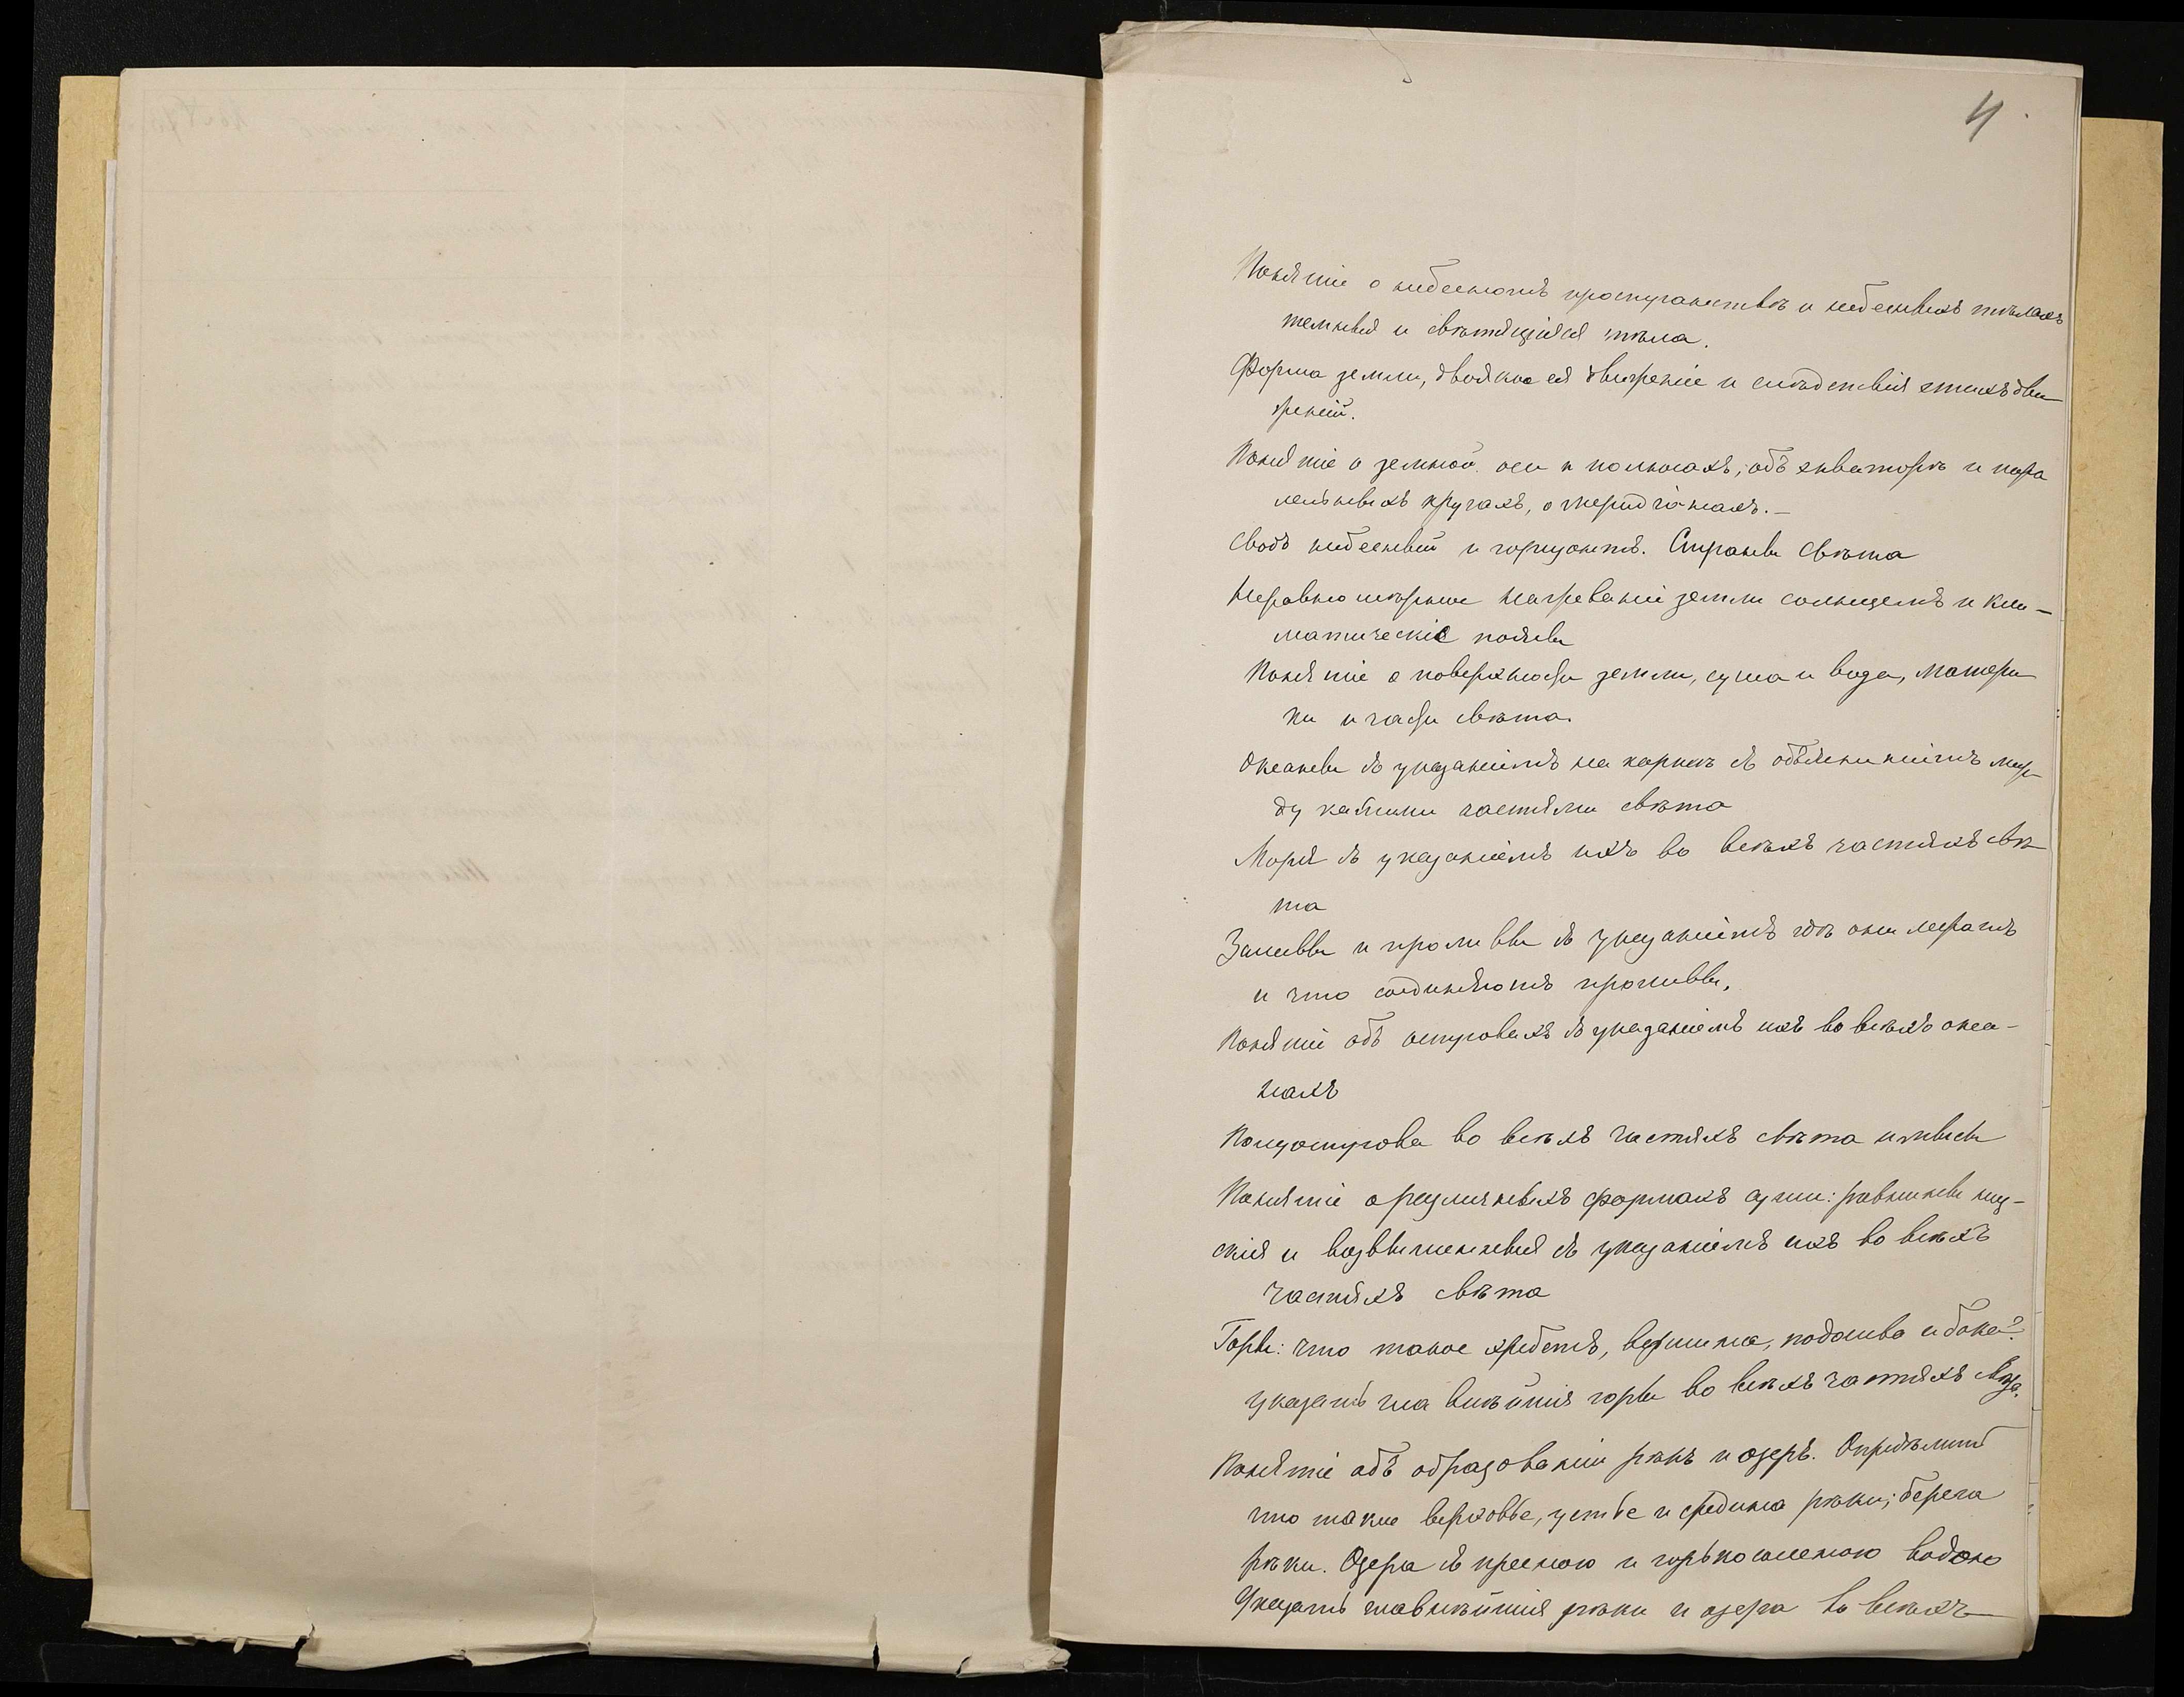 4
Понятіе о небесномъ пространствѣ и небесныхъ тѣлахъ
темныя и свѣтящіяся тѣла.
Форма земли, двоякое ея движеніе и слѣдствія этихъ дви
женій.
Понятіе о земной оси и полюсахъ, объ экваторѣ и пара
лельныхъ кругахъ, о меридіанахъ.—
Сводъ небесный и горизонтъ. Страны свѣта
Неравномѣрное нагреваніе земли солнцемъ и кли-
матическіе поясы
Понятіе о поверхности земли, суша и вода, матери
ки и части свѣта.
Океаны съ указаніемъ на картѣ съ объясненіемъ меж
ду какими частями свѣта
Моря съ указаніемъ ихъ во всѣхъ частяхъ свѣ
та
Заливы и проливы съ указаніемъ гдѣ они лежатъ
и что соединяютъ проливы,
Понятіе объ островахъ съ указаніемъ ихъ во всѣхъ океа-
нахъ
Полуострова во всѣхъ частяхъ свѣта и мысы
Понятіе о различныхъ формахъ суши: равнины низ-
скія и возвышенныя съ указаніемъ ихъ во всѣхъ
частяхъ свѣта
Горы: что такое хребетъ, вершина, подошва и бока?
указать на главнѣйшія горы во всѣхъ частяхъ свѣта.
Понятіе объ образованіи рѣкъ и озеръ. Опредѣлить
что такое верховье, устье и средина рѣки; берега
рѣки. Озера съ пресною и горько соленою водою
Указать главнѣйшія рѣки и озера во всѣхъ